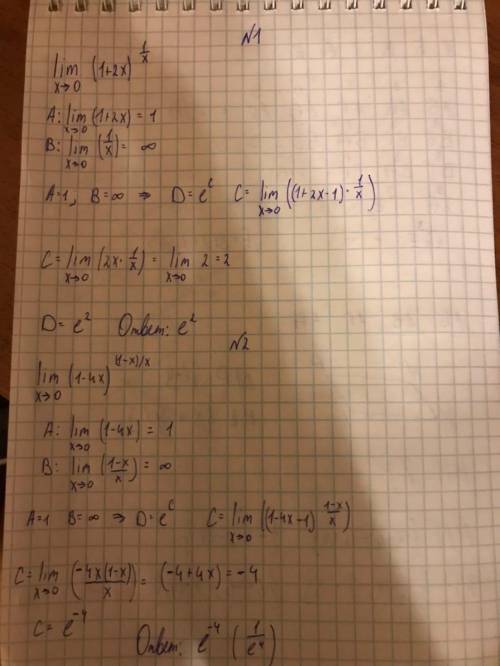 №1
lim x→0 (1+2x)^(1/x)
A: lim x→0 (1+2x) = 1
B: lim x→0 (1/x) = ∞
A=1, B=∞ ⇒ D=e^c C= lim x→0 ((1+2x-1)·1/x)
C= lim x→0 (2x·1/x) = lim x→0 2 = 2
D= e^2 Ответ: e^2
№2
lim x→0 (1-4x)^((1-x)/x)
A: lim x→0 (1-4x) = 1
B: lim x→0 ((1-x)/x) = ∞
A=1 B=∞ ⇒ D=e^c C= lim x→0 ((1-4x-1) (1-x)/x)
C= lim x→0 (-4x(1-x)/x) = (-4+4x) = -4
C= e^-4
Ответ: e^-4 (1/e^4)